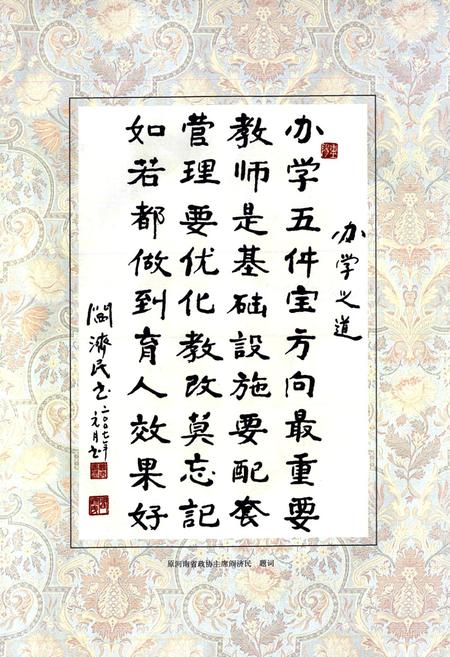 办学之道
办学五件宝方向最重要
教师是基础設施要配套
管理要优化教改莫忘記
如若都做到育人效果好
閻濟民书二〇〇七年
元月书
原河南省政协主席阎济民 题词